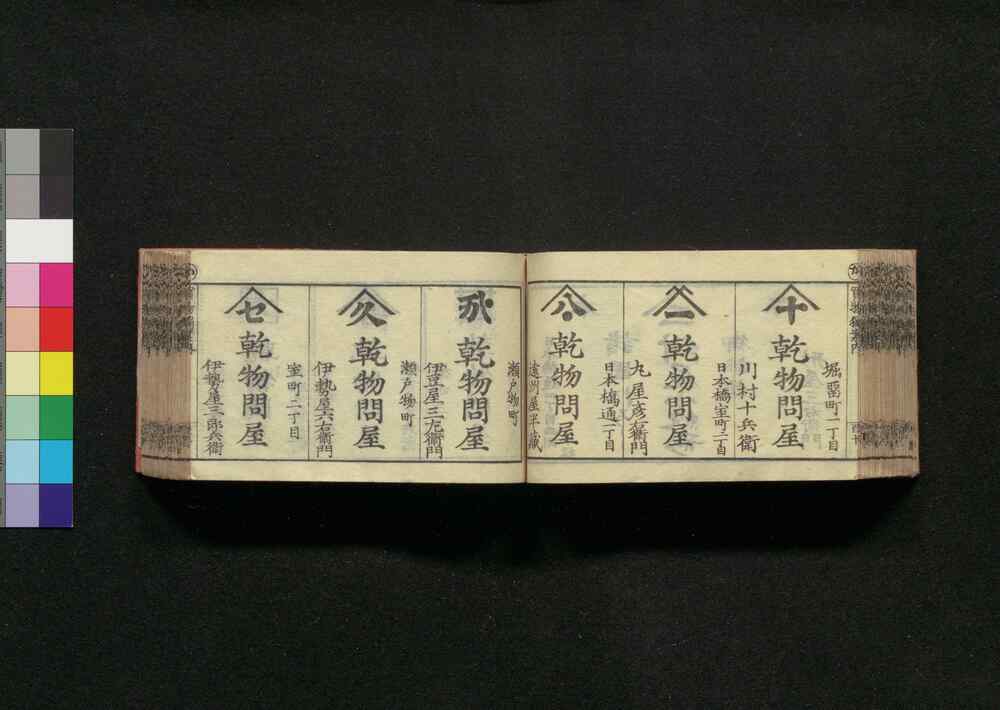 堀畱町一丁目
十
乾物問屋
川村十兵衛
日本橋室町二丁目
一
乾物問屋
丸屋彦右衛門
日本橋通一丁目
八
乾物問屋
遠州屋半蔵
瀬戸物町
乾物問屋
伊豆屋三左衛門
瀬戸物町
久
乾物問屋
伊勢屋六右衛門
室町二丁目
七
乾物問屋
伊勢屋三郎兵衛